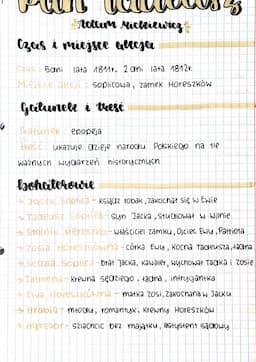 Pan Tadeusz
Adam Mickiewicz
Czas i miejsce akcji
Czas: 5 dni lata 1811r, 2 dni lata 1812r.
Miejsce akcji: Soplicowa, zamek Horeszków
Gatunek i treść
Gatunek: epopeja
Treść: ukazuje dzieje narodu Polskiego na tle
ważnych wydarzeń historycznych
Bohaterowie
→ Jacek Soplica - ksiądz robak, zakochał się w Ewie
→ Tadeusz Soplica - syn Jacka, studiował w Wilnie
→ Stolnik Horeszko - właściciel zamku, Ojciec Ewy, Patriota
→ Zosia Horeszkówna - córka Ewy, kocha Tadeusza, ładna
→ Sędzia Soplica - brat Jacka, kawaler, wychował Tadka i Zosie
→ Telimena - krewna sędziego, ładna, intrygantka
→ Ewa Horeszkówna - matka Zosi, zakochana w Jacku
→ Hrabia - młody, romantyk, krewny Horeszków
→ - szlachcic bez majątku, asystent sądowy